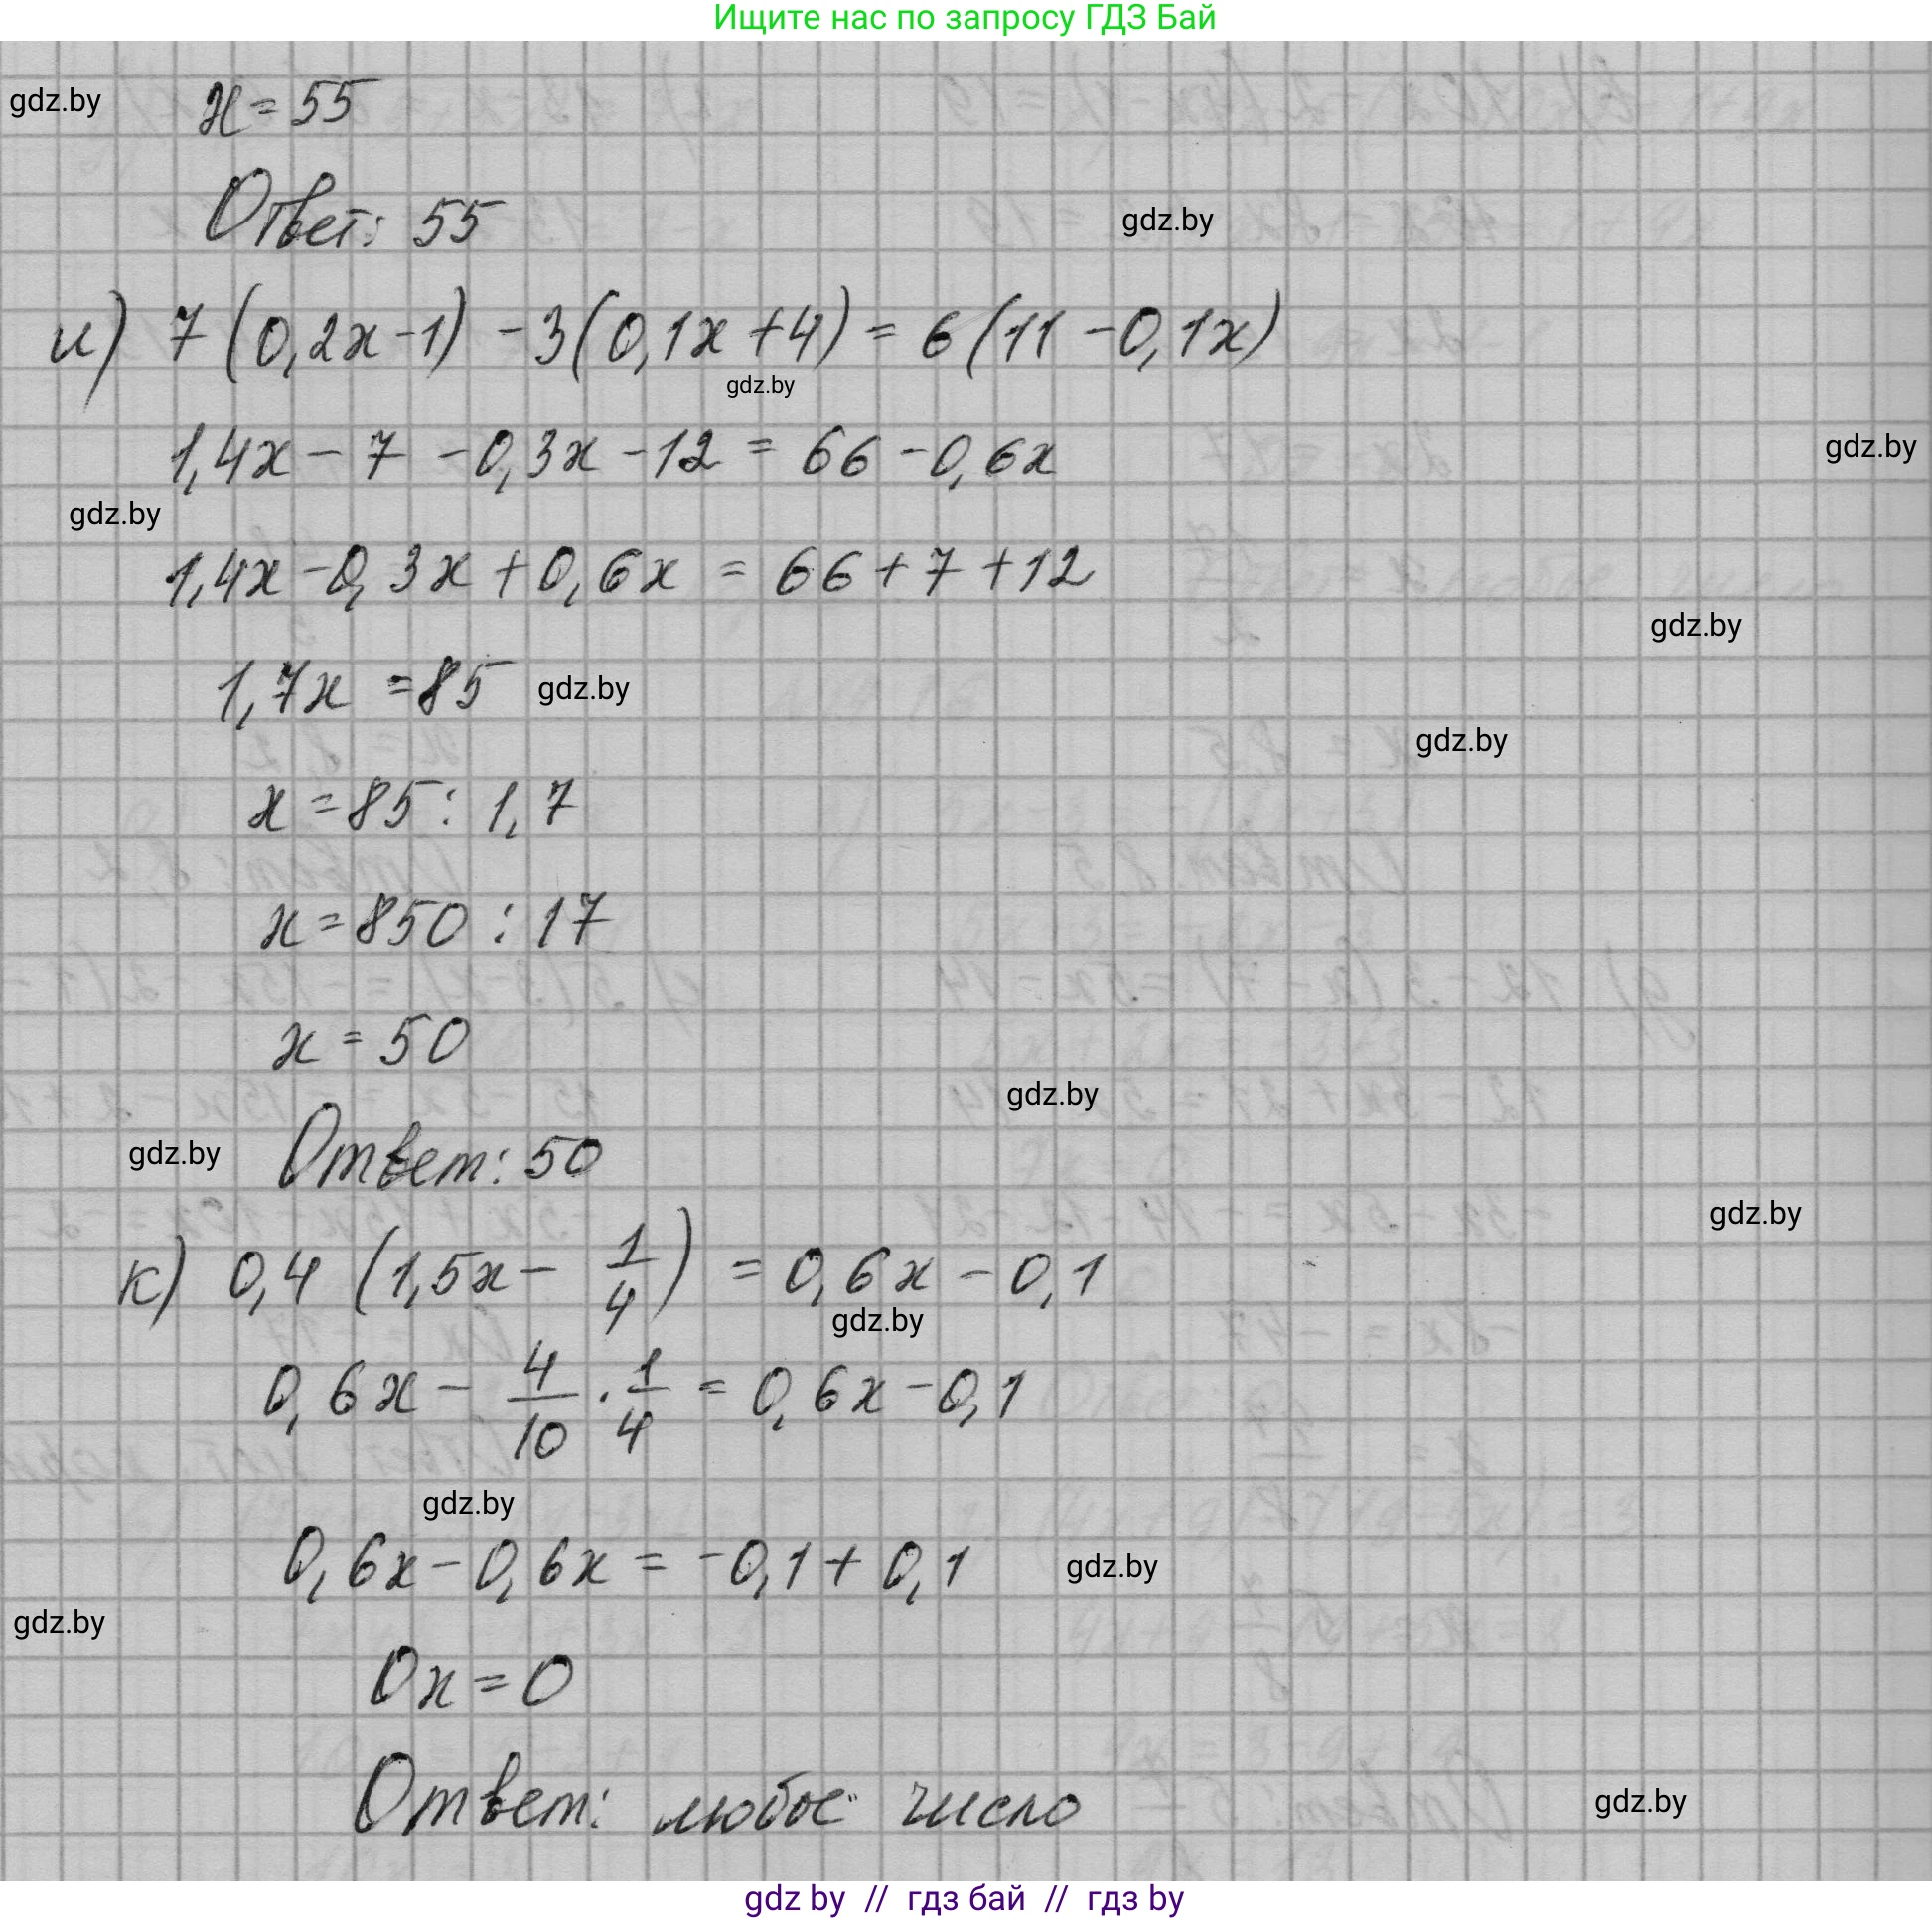 Ищите нас по запросу ГДЗ Бай
gdz.by
x = 55
Ответ: 55
gdz.by
и) 7(0,2x - 1) - 3(0,1x + 4) = 6(11 - 0,1x)
gdz.by
1,4x - 7 - 0,3x - 12 = 66 - 0,6x
gdz.by
gdz.by
1,4x - 0,3x + 0,6x = 66 + 7 + 12
gdz.by
1,7x = 85
gdz.by
gdz.by
x = 85 : 1,7
x = 850 : 17
x = 50
gdz.by
gdz.by
Ответ: 50
gdz.by
к) 0,4 (1,5x - 1/4) = 0,6x - 0,1
gdz.by
0,6x - 4/10 · 1/4 = 0,6x - 0,1
gdz.by
0,6x - 0,6x = -0,1 + 0,1
gdz.by
gdz.by
0x = 0
gdz.by
Ответ: любое число
gdz by // гдз бай // гдз by